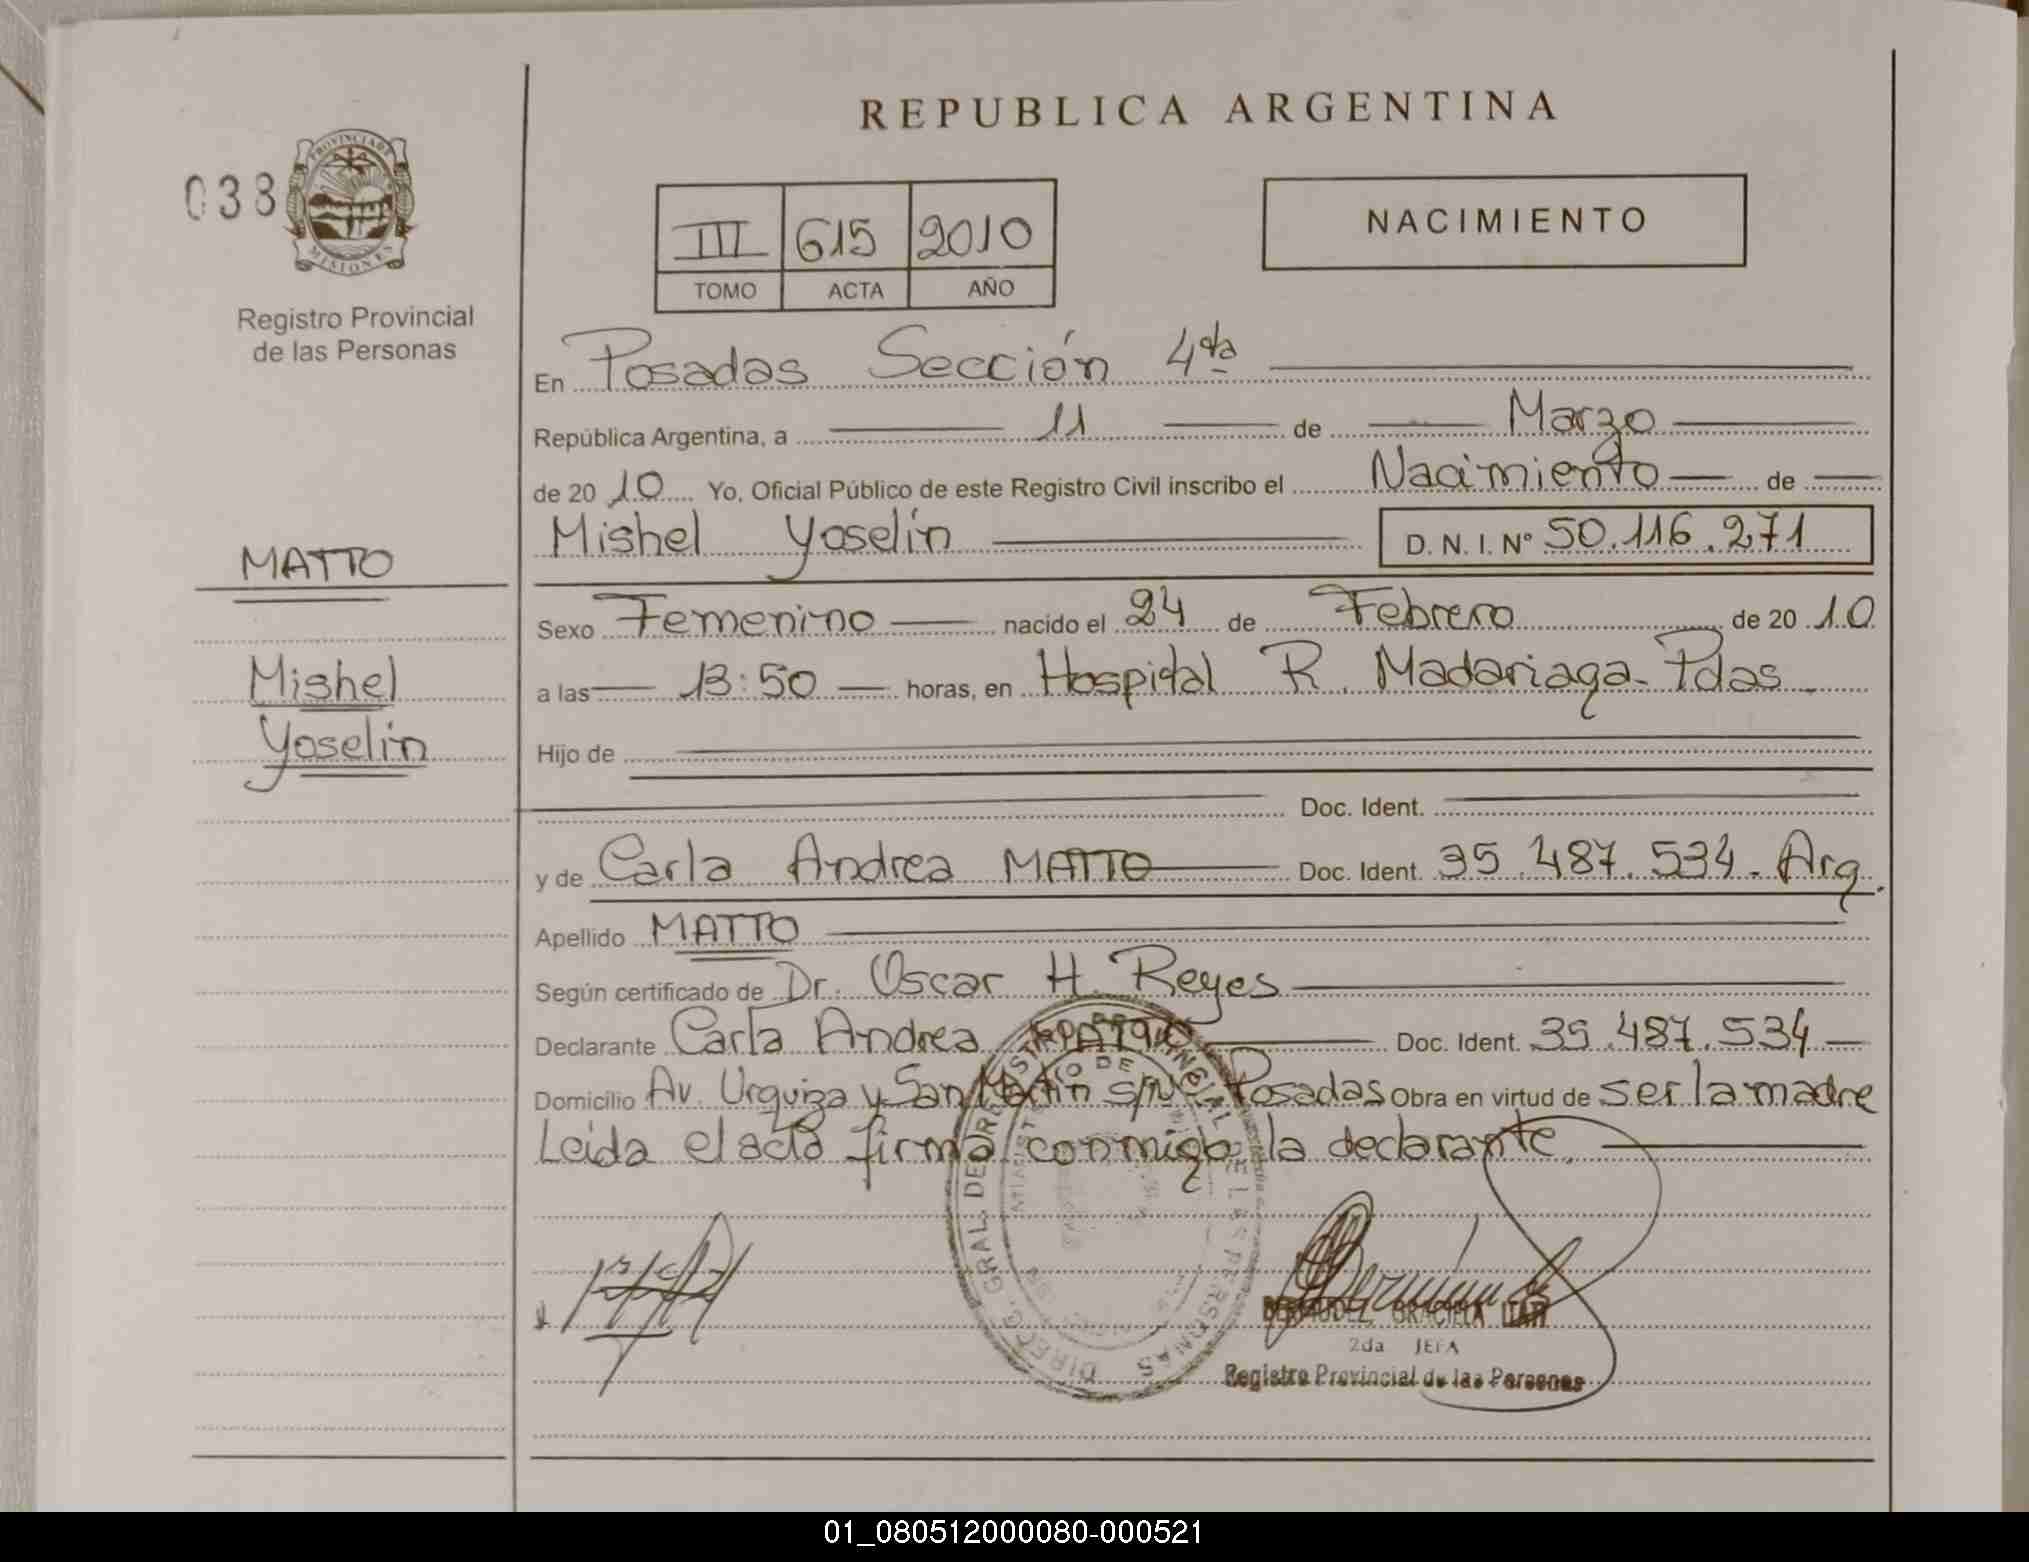 REPUBLICA ARGENTINA
038
PROVINCIA DE
MISIONES
Registro Provincial
de las Personas
III 615 2010
TOMO ACTA AÑO
NACIMIENTO
En Posadas Sección 4ta
República Argentina, a 11 de Marzo
de 2010 Yo, Oficial Público de este Registro Civil inscribo el Nacimiento de
Mishel Yoselin D. N. I. N° 50.116.271
MATTO
Mishel
Yoselin
Sexo Femenino nacido el 24 de Febrero de 2010
a las 13:50 horas, en Hospital R. Madariaga - Pdas
Hijo de
Doc. Ident.
y de Carla Andrea MATTO Doc. Ident. 35.487.534 - Arg.
Apellido MATTO
Según certificado de Dr. Oscar H. Reyes
Declarante Carla Andrea MATTO Doc. Ident. 35.487.534
Domicilio Av. Urquiza y San Martin s/N° Posadas Obra en virtud de ser la madre
Leida el acta firma conmigo la declarante.
DIRECC. GRAL. DE REGISTRO PROVINCIAL DE LAS PERSONAS
BERMUDEZ GRACIELA ITATI
2da JEFA
Registro Provincial de las Personas
01_080512000080-000521